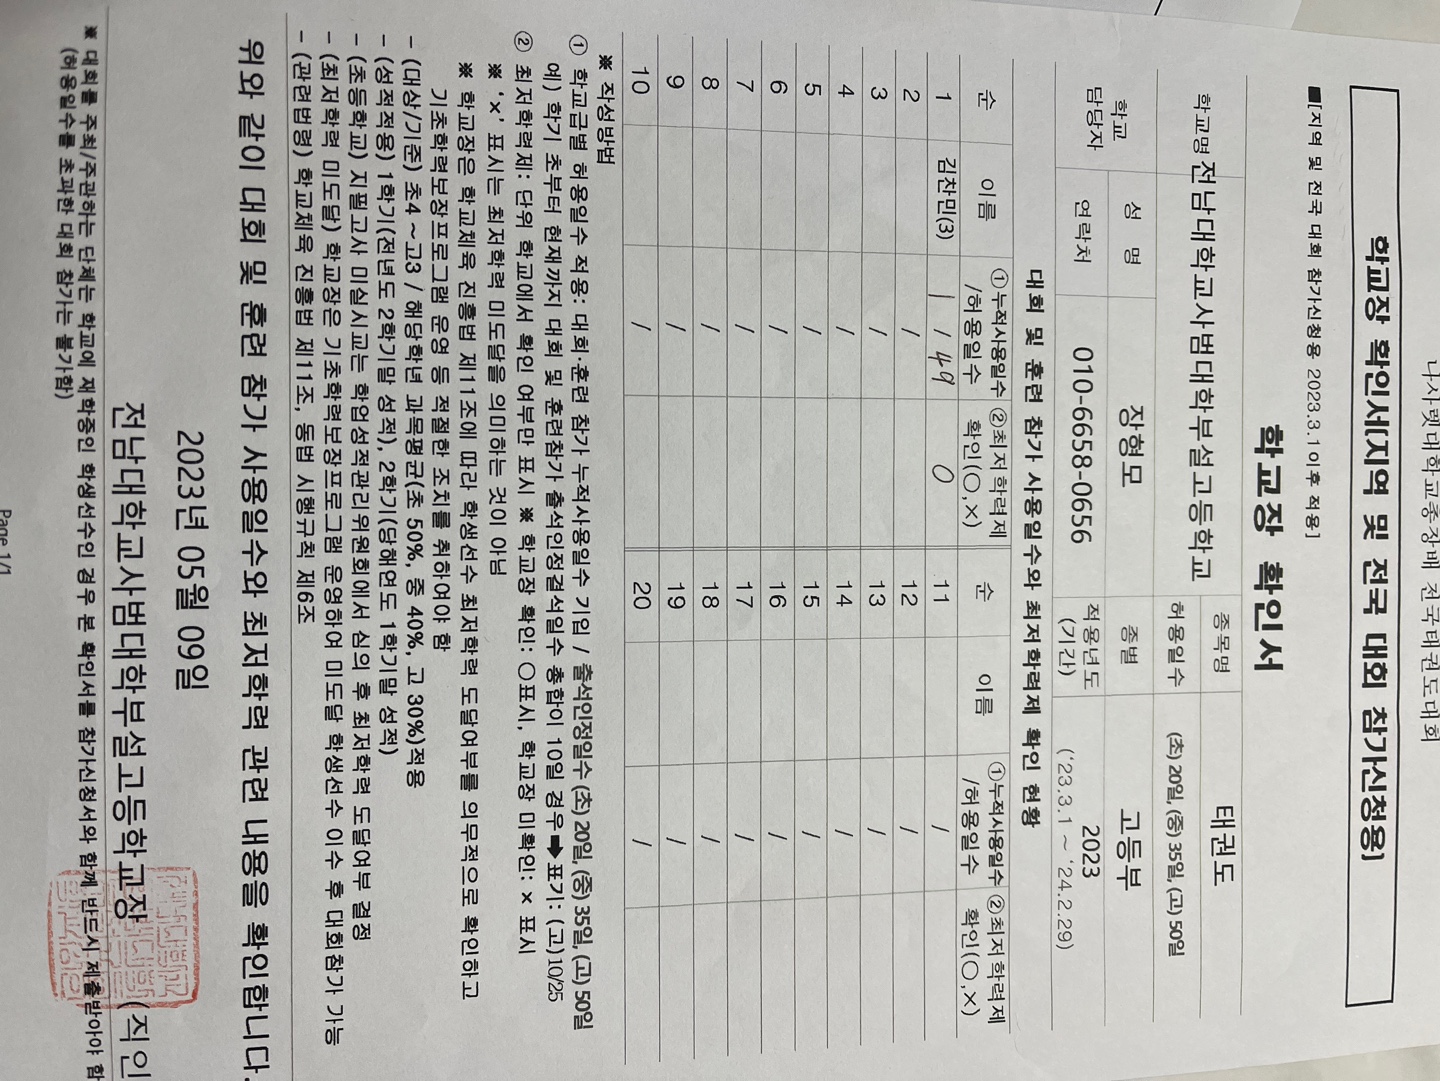 나사렛대학교총장배 전국태권도대회
학교장 확인서[지역 및 전국 대회 참가신청용]
■[지역 및 전국 대회 참가신청용 2023.3.1이후 적용]
학교장 확인서
학교명 전남대학교사범대학부설고등학교 종목명 태권도
허용일수 (초) 20일, (중) 35일, (고) 50일
학교 담당자 성 명 장형모 종별 고등부
연락처 010-6658-0656 적용년도 (기간) 2023 ('23.3.1 ~ '24.2.29)
대회 및 훈련 참가 사용일수와 최저학력제 확인 현황
순 이름 ①누적사용일수 /허용일수 ②최저학력제 확인(○,×) 순 이름 ①누적사용일수 /허용일수 ②최저학력제 확인(○,×)
1 김찬민(3) 1 / 49 O 11 /
2 / 12 /
3 / 13 /
4 / 14 /
5 / 15 /
6 / 16 /
7 / 17 /
8 / 18 /
9 / 19 /
10 / 20 /
※ 작성방법
① 학교급별 허용일수 적용: 대회·훈련 참가 누적사용일수 기입 / 출석인정일수 (초) 20일, (중) 35일, (고) 50일
예) 학기 초부터 현재까지 대회 및 훈련참가 출석인정결석일수 총합이 10일 경우➡ 표기: (고)10/25
② 최저학력제: 단위 학교에서 확인 여부만 표시 ※ 학교장 확인: ○표시, 학교장 미확인: × 표시
※ '×' 표시는 최저학력 미도달을 의미하는 것이 아님
※ 학교장은 학교체육 진흥법 제11조에 따라 학생선수 최저학력 도달여부를 의무적으로 확인하고
기초학력보장프로그램 운영 등 적절한 조치를 취하여야 함
- (대상/기준) 초4 ~ 고3 / 해당학년 과목평균(초 50%, 중 40%, 고 30%)적용
- (성적적용) 1학기(전년도 2학기말 성적), 2학기(당해연도 1학기말 성적)
- (초등학교) 지필고사 미실시교는 학업성적관리위원회에서 심의 후 최저학력 도달여부 결정
- (최저학력 미도달) 학교장은 기초학력보장프로그램 운영하여 미도달 학생선수 이수 후 대회참가 가능
- (관련법령) 학교체육 진흥법 제11조, 동법 시행규칙 제6조
위와 같이 대회 및 훈련 참가 사용일수와 최저학력 관련 내용을 확인합니다.
2023년 05월 09일
전남대학교사범대학부설고등학교장 (직인
※ 대회를 주최/주관하는 단체는 학교에 재학중인 학생선수인 경우 본 확인서를 참가신청서와 함께 반드시 제출받아야 함
(허용일수를 초과한 대회 참가는 불가함)
Page 1/1